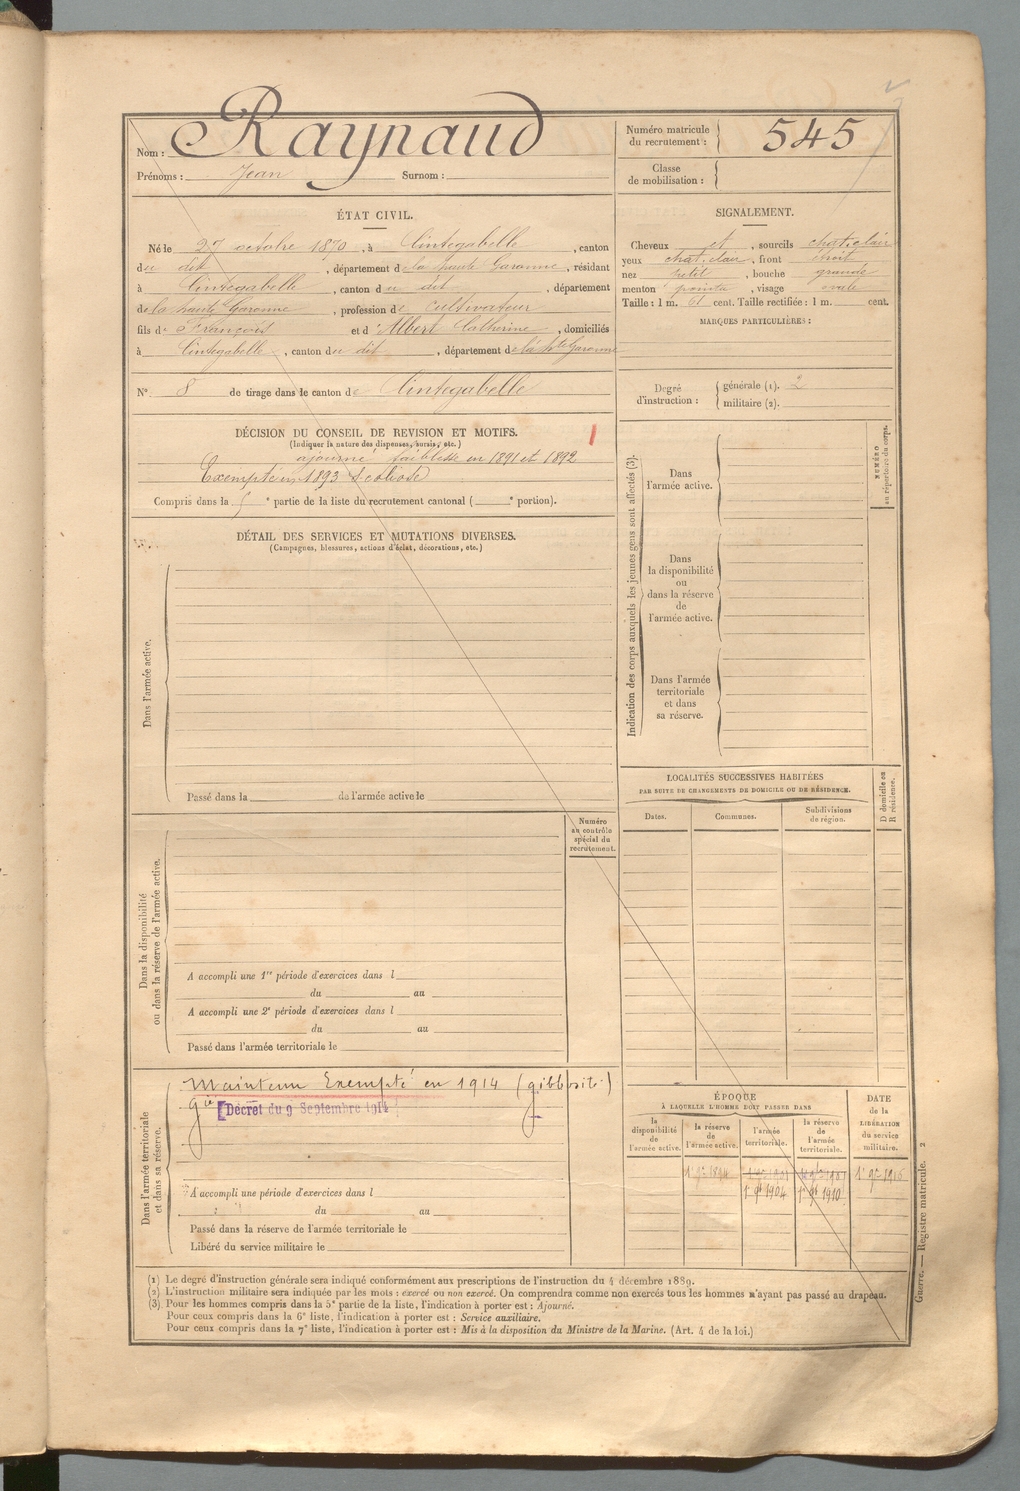 Nom : Raynaud
Prénoms : Jean Surnom :
Numéro matricule du recrutement : 545
Classe de mobilisation :
ÉTAT CIVIL.
Né le 27 octobre 1870, à Cintegabelle, canton
du dit, département de la haute Garonne, résidant
à Cintegabelle, canton du dit, département
de la haute Garonne, profession de cultivateur
fils de François et d'Albert Catherine, domiciliés
à Cintegabelle, canton du dit, département de la hte Garonne
N° 8 de tirage dans le canton de Cintegabelle
SIGNALEMENT.
Cheveux et, sourcils chat. clair
yeux chat. clair, front étroit
nez petit, bouche grande
menton pointu, visage ovale
Taille : 1 m. 61 cent. Taille rectifiée : 1 m. cent.
MARQUES PARTICULIÈRES :
Degré d'instruction :
générale (1). 2
militaire (2).
DÉCISION DU CONSEIL DE REVISION ET MOTIFS.
(Indiquer la nature des dispenses, sursis, etc.)
ajourné faiblesse en 1891 et 1892
Exempté en 1893 Scoliose
Compris dans la 5e partie de la liste du recrutement cantonal ( e portion).
DÉTAIL DES SERVICES ET MUTATIONS DIVERSES.
(Campagnes, blessures, actions d'éclat, décorations, etc.)
Dans l'armée active.
Passé dans la de l'armée active le
Numéro au contrôle spécial du recrutement.
Dans la disponibilité ou dans la réserve de l'armée active.
A accompli une 1re période d'exercices dans l
du au
A accompli une 2e période d'exercices dans l
du au
Passé dans l'armée territoriale le
Dans l'armée territoriale et dans sa réserve.
Maintenu Exempté en 1914 (gibbosité)
Décret du 9 Septembre 1914
A accompli une période d'exercices dans l
du au
Passé dans la réserve de l'armée territoriale le
Libéré du service militaire le
Indication des corps auxquels les jeunes gens sont affectés (3).
Dans l'armée active.
Dans la disponibilité ou dans la réserve de l'armée active.
Dans l'armée territoriale et dans sa réserve.
NUMÉRO au répertoire du corps.
LOCALITÉS SUCCESSIVES HABITÉES
PAR SUITE DE CHANGEMENTS DE DOMICILE OU DE RÉSIDENCE.
Dates.
Communes.
Subdivisions de région.
D domicile ou R résidence.
ÉPOQUE
À LAQUELLE L'HOMME DOIT PASSER DANS
la disponibilité de l'armée active.
la réserve de l'armée active.
l'armée territoriale.
la réserve de l'armée territoriale.
DATE de la LIBÉRATION du service militaire.
1er 9bre 1894
1er 9bre 1916
1904
1910
(1) Le degré d'instruction générale sera indiqué conformément aux prescriptions de l'instruction du 4 décembre 1889.
(2) L'instruction militaire sera indiquée par les mots : exercé ou non exercé. On comprendra comme non exercés tous les hommes n'ayant pas passé au drapeau.
(3) Pour les hommes compris dans la 5e partie de la liste, l'indication à porter est : Ajourné.
Pour ceux compris dans la 6e liste, l'indication à porter est : Service auxiliaire.
Pour ceux compris dans la 7e liste, l'indication à porter est : Mis à la disposition du Ministre de la Marine. (Art. 4 de la loi.)
Guerre. — Registre matricule. 2